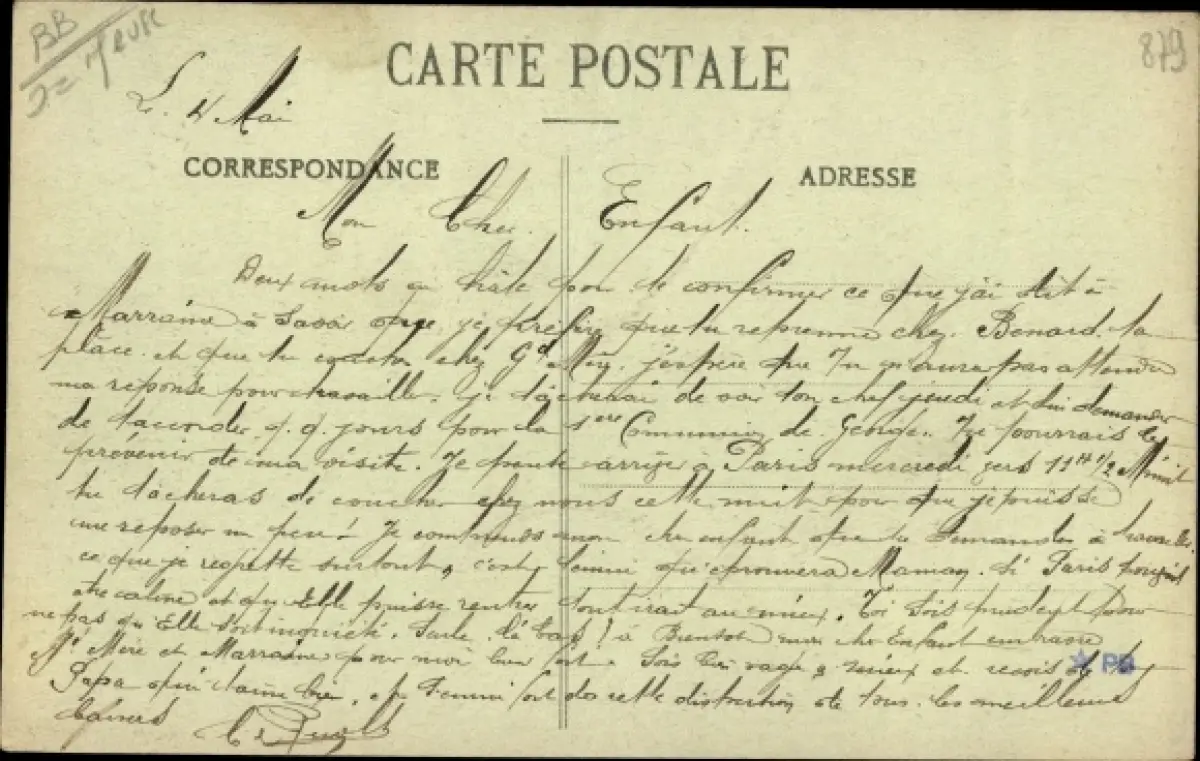 BB
Meuse
879
CARTE POSTALE
Le 4 Mai
CORRESPONDANCE
ADRESSE
Mon Cher Enfant.
Deux mots en hâte pour te confirmer ce que j'ai dit à
Marraine à savoir que je préfère que tu reprenne chez Benard ta
place. et que tu couches chez Gd Mère. j'espère que Tu n'auras pas attendu
ma réponse pour travailler. je tâcherai de voir ton chef jeudi et lui demander
de t'accorder q. q. jours pour la 1ere Communion de George. Tu pourrais le
prévenir de ma visite. Je pense arriver à Paris mercredi vers 11H 1/2 Minuit
tu tâcheras de coucher chez nous cette nuit pour que je puisse
me reposer un peu! Je comprends mon cher enfant que tu demandes à travailler
ce que je regrette surtout, c'est l'ennui qu'éprouvera Maman. Si Paris
être calme et qu'Elle puisse rentrer tout irait au mieux. Toi sois prudent pour
ne pas qu'Elle soit inquiète. Seule là bas! à Bientot mon cher Enfant embrasse
Gd Mère et Marraine pour moi bien fort. Sois bien sage, et reçois de ton
Papa qui t'aime bien, les meilleurs
baisers
PB